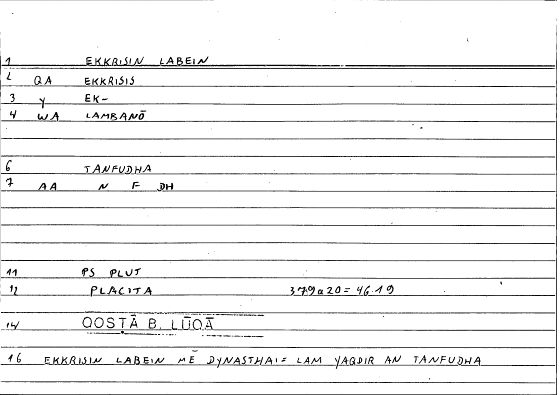 1 EKKRISIN LABEIN
2 QA EKKRISIS
3 y EK-
4 WA LAMBANŌ
6 TANFUDHA
7 AA N F DH
11 PS PLUT
12 PLACITA 379a20 = 46.19
14 QOSTĀ B. LŪQĀ
16 EKKRISIN LABEIN MĒ DYNASTHAI = LAM YAQDIR AN TANFUDHA